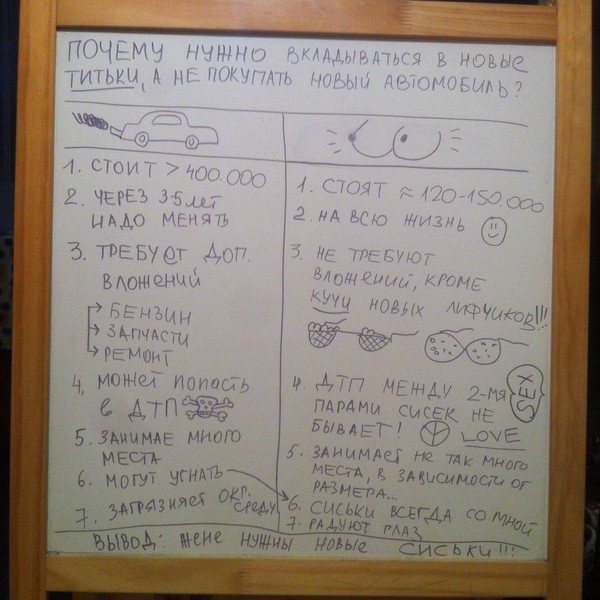 ПОЧЕМУ НУЖНО ВКЛАДЫВАТЬСЯ В НОВЫЕ
ТИТЬКИ, А НЕ ПОКУПАТЬ НОВЫЙ АВТОМОБИЛЬ?
1. СТОИТ > 400.000
2. ЧЕРЕЗ 3-5 лет
НАДО МЕНЯТЬ
3. ТРЕБУЕТ ДОП.
ВЛОЖЕНИЙ
БЕНЗИН
ЗАПЧАСТИ
РЕМОНТ
4. МОЖЕТ ПОПАСТЬ
в ДТП
5. ЗАНИМАЕ МНОГО
МЕСТА
6. МОГУТ УГНАТЬ
7. ЗАГРЯЗНЯЕТ ОКР.
СРЕДУ
1. СТОЯТ ≈ 120-150.000
2. НА ВСЮ ЖИЗНЬ
3. НЕ ТРЕБУЮТ
ВЛОЖЕНИЙ, КРОМЕ
КУЧИ НОВЫХ ЛИФЧИКОВ!!!
4. ДТП МЕЖДУ 2-МЯ
ПАРАМИ СИСЕК НЕ
БЫВАЕТ! LOVE
SEX
5. ЗАНИМАЕТ НЕ ТАК МНОГО
МЕСТА, В ЗАВИСИМОСТИ ОТ
РАЗМЕРА...
6. СИСЬКИ ВСЕГДА СО МНОЙ
7. РАДУЮТ ГЛАЗ
ВЫВОД: МНЕ НУЖНЫ НОВЫЕ СИСЬКИ!!!